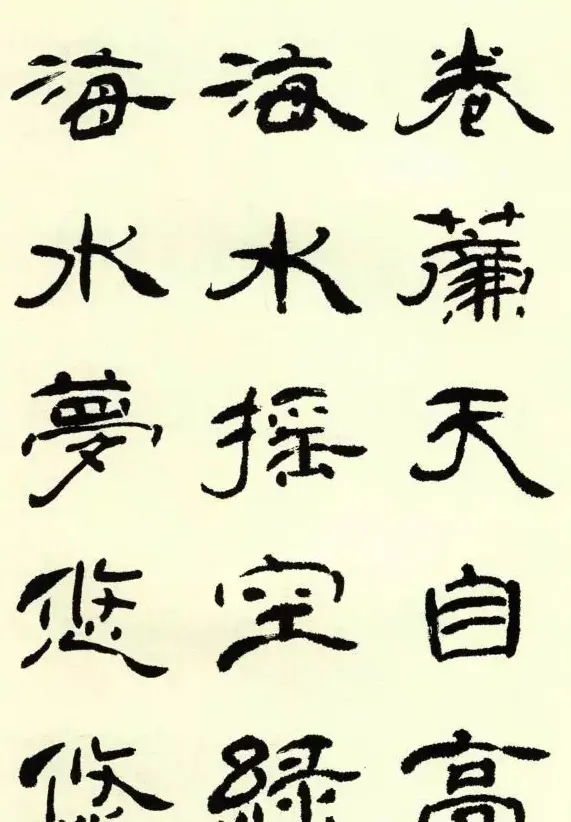 卷簾天自高
海水摇空緑
海水夢悠悠